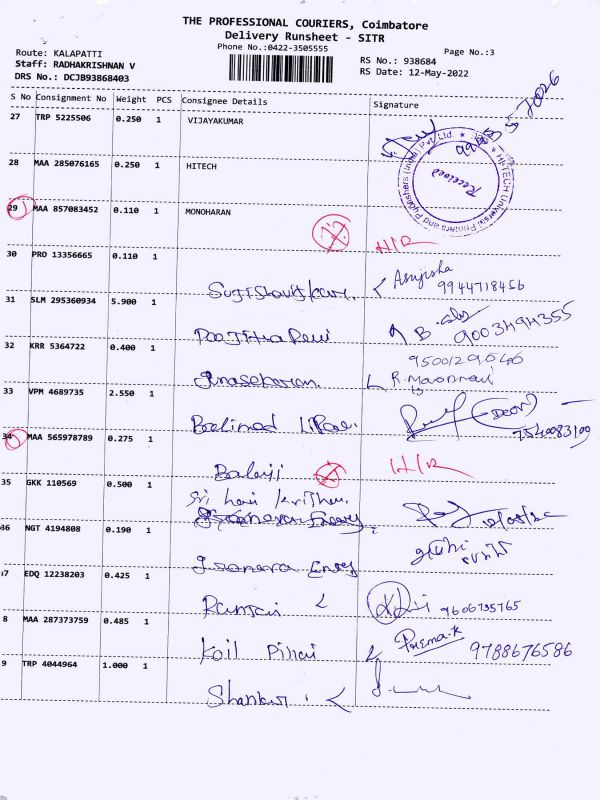 THE PROFESSIONAL COURIERS, Coimbatore
Delivery Runsheet - SITR
Phone No.:0422-3505555
Page No.:3
Route: KALAPATTI
Staff: RADHAKRISHNAN V
RS No.: 938684
DRS No.: DCJB93868403
RS Date: 12-May-2022
S No Consignment No Weight PCS Consignee Details Signature
27 TRP 5225506 0.250 1 VIJAYAKUMAR
28 MAA 285076165 0.250 1 HITECH
HITECH Universal Printers and Publishers (India) Pvt. Ltd.
Received
29 MAA 857083452 0.110 1 MONOHARAN
H/R
30 PRO 13356665 0.110 1
9944718456
31 SLM 295360934 5.900 1
B.
9003494355
32 KRR 5364722 0.400 1
9500129646
Gnasekaran
33 VPM 4689735 2.550 1
7540083109
34 MAA 565978789 0.275 1
Balaji
H/R
35 GKK 110569 0.500 1
Sri hari krithu.
36 NGT 4194808 0.190 1
37 EDQ 12238203 0.425 1
9606735765
8 MAA 287373759 0.485 1
Koil Pillai
Prema.K
9788676586
9 TRP 4044964 1.000 1
Shankur